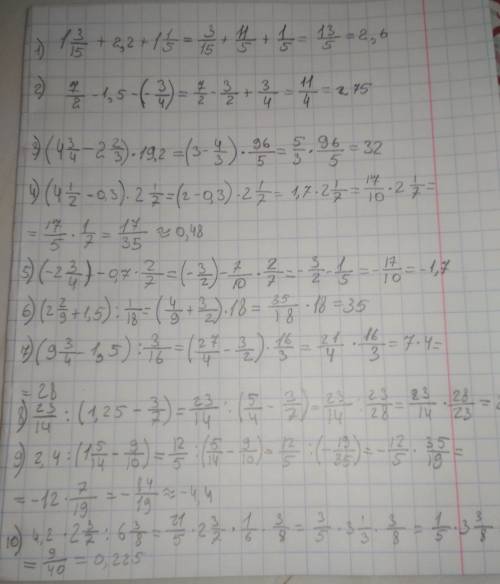 1) 1 3/15 + 2,2 + 1 1/5 = 3/15 + 11/5 + 1/5 = 13/5 = 2,6
2) 7/2 - 1,5 - (-3/4) = 7/2 - 3/2 + 3/4 = 11/4 = 2 75
3) (4 3/4 - 2 2/3) · 19,2 = (3 - 4/3) · 96/5 = 5/3 · 96/5 = 32
4) (4 1/2 - 0,3) · 2 1/7 = (2 - 0,3) · 2 1/7 = 1,7 · 2 1/7 = 17/10 · 2 1/7 =
= 17/5 · 1/7 = 17/35 ≈ 0,48
5) (-2 3/4) - 0,7 · 2/7 = (-3/2) - 7/10 · 2/7 = -3/2 - 1/5 = -17/10 = -1,7
6) (2 2/9 + 1,5) : 1/18 = (4/9 + 3/2) · 18 = 35/18 · 18 = 35
7) (9 3/4 - 1,5) : 3/16 = (27/4 - 3/2) · 16/3 = 21/4 · 16/3 = 7 · 4 =
= 28
8) 23/14 : (1,25 - 3/7) = 23/14 : (5/4 - 3/7) = 23/14 : 23/28 = 23/14 · 28/23 =
9) 2,4 : (1 5/14 - 9/10) = 12/5 : (5/14 - 9/10) = 12/5 : (-19/35) = -12/5 · 35/19 =
= -12 · 7/19 = -84/19 ≈ -4,4
10) 4,2 · 2 3/7 : 6 3/8 = 21/5 · 2 3/7 · 1/6 · 3/8 = 3/5 · 3 1/3 · 3/8 = 1/5 · 3 3/8
= 9/40 = 0,225